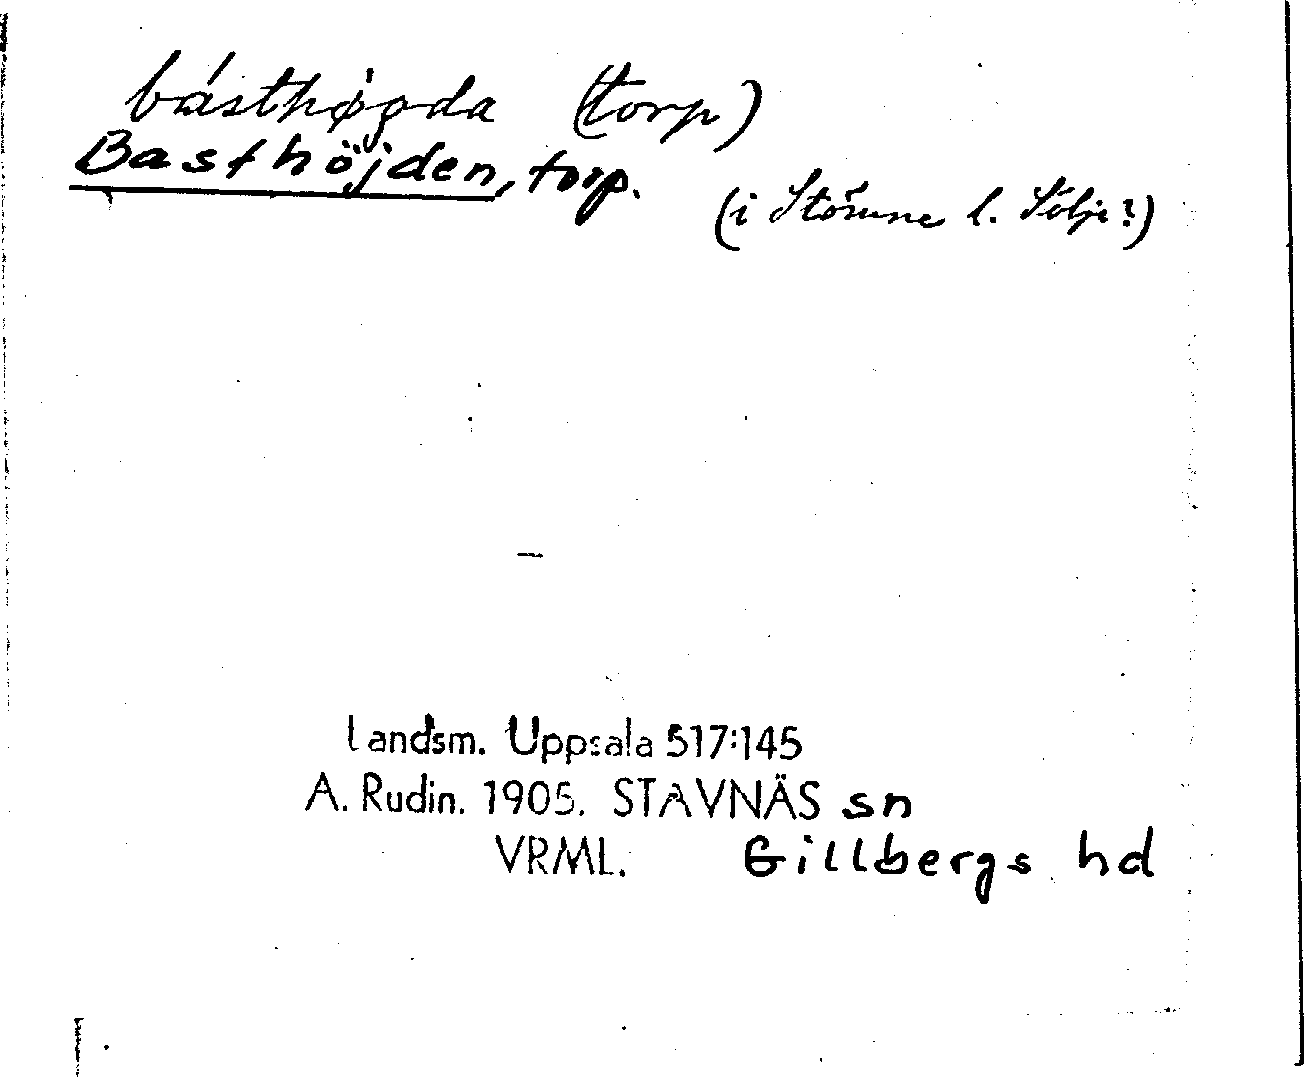 básthøgda (torp)
Basthöjden, torp.
(i Stömne l. Sölje?)
Landsm. Uppsala 517:145
A. Rudin. 1905. STAVNÄS sn
VRML. Gillbergs hd